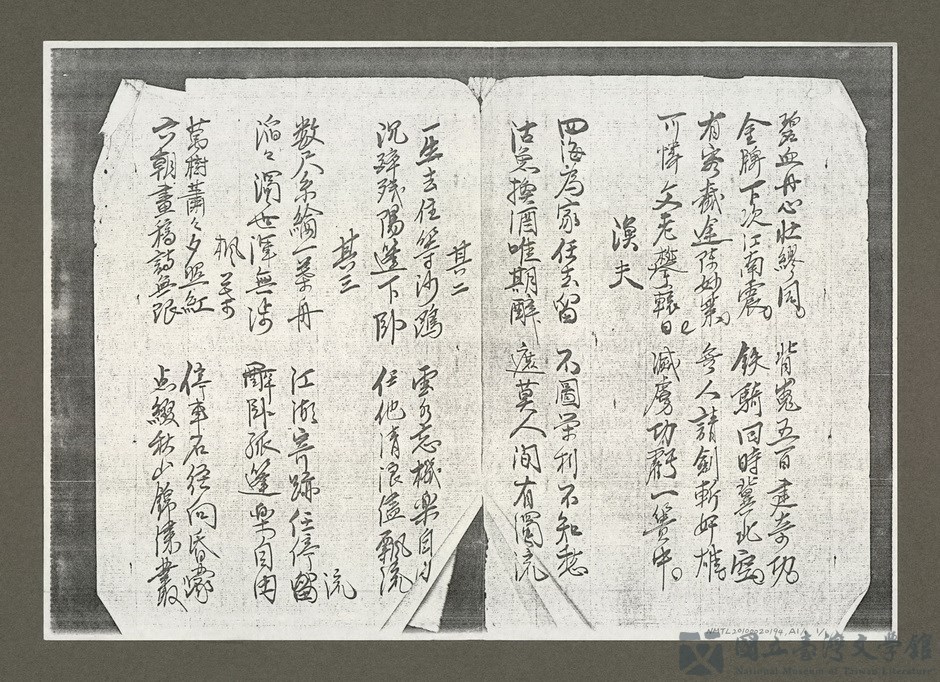 碧血丹心壯繆同。背嵬五百建奇功。
金牌下次江南震。鉄騎回時冀北空。
有客截途陳妙策。無人請劍斬奸雄。
可憐父老攀轅日。滅虜功虧一簣中。
漁夫
四海為家任去留 不圖榮利不知愁
沽魚換酒唯期醉 遮莫人間有濁流
其二
一生去住等沙鷗 雲水忘機樂自由
沉醉殘陽蓬下臥 任他清浪儘飄流
其三
數尺糸綸一葉舟 江湖寄跡任停留
流
滔々濁世渾無涉 醉臥孤篷樂自由
楓葉
萬樹蕭々夕照紅 停車石徑向昏
六朝畫稿詩無限 点綴秋山錦繡叢
NMTL20100020194, A1/ 1/1
國立臺灣文學館
National Museum of Taiwan Literature